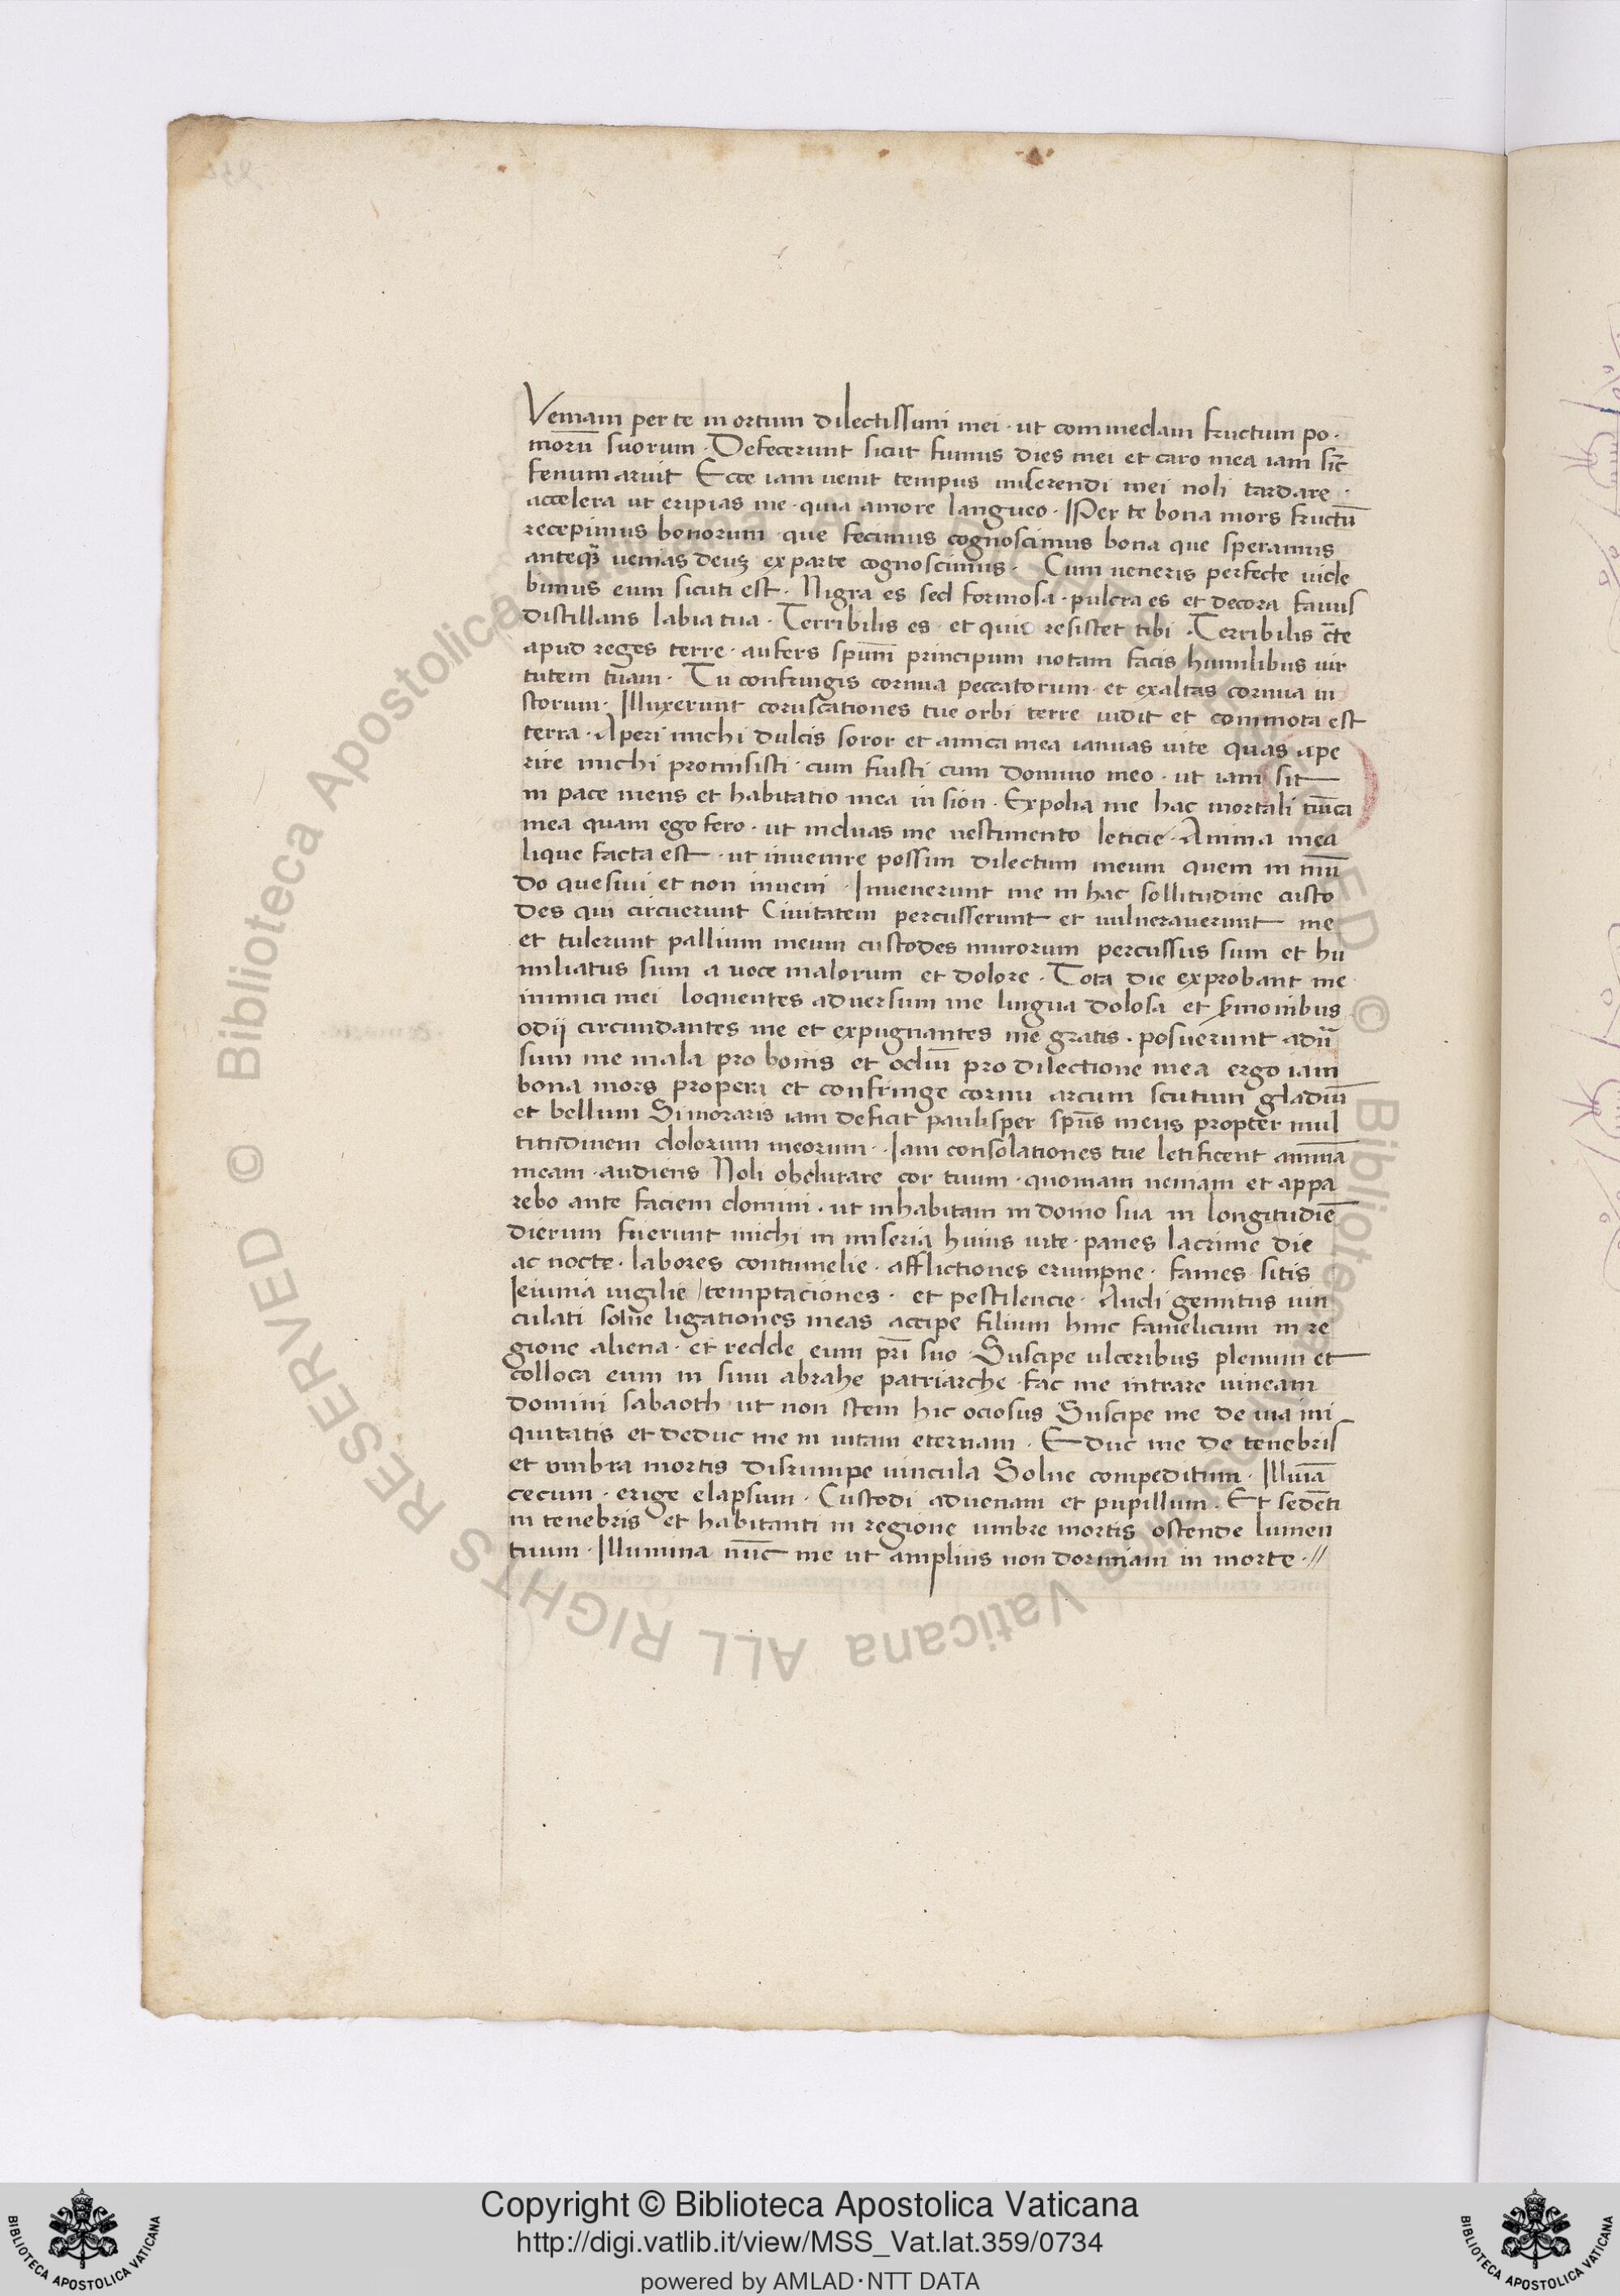 Veniam per te in ortum dilectissimi mei · ut commedam fructum po·
morū suorum · Defecerunt sicut fumus dies mei et caro mea iam sic̄
fenum aruit Ecce iam venit tempus miserendi mei noli tardare ·
accelera ut eripias me · quia amore langueo · Per te bona mors fructū
recepimus bonorum que fecimus cognoscimus bona que speramus
anteq̄ venias deuʒ ex parte cognoscimus · Cum veneris perfecte vide
bimus eum sicuti est · Nigra es sed formosa · pulcra es et decora favus
distillans labia tua · Terribilis es · et quis resistet tibi · Terribilis c̄te
apud reges terre · aufers spūm principum notam facis humilibus vir
tutem tuam · Tu confringis cornua peccatorum · et exaltas cornua iu
storum · Illuxerunt coruscationes tue orbi terre vidit et commota est
terra · Aperi michi dulcis soror et amica mea ianuas vite quas ape
rire michi promisisti · cum fuisti cum domino meo · ut iam sit
in pace mens et habitatio mea in sion · Expolia me hac mortali tūica
mea quam ego fero · ut induas me vestimento leticie · Anima mea
lique facta est · ut invenire possim dilectum meum quem in mū
do quesivi et non inveni · Invenerunt me in hac sollitudine custo
des qui circuerunt Civitatem percusserunt et vulneraverunt me
et tulerunt pallium meum custodes murorum percussus sum et hu
miliatus sum a voce malorum et dolore · Tota die exprobant me
inimici mei loquentes adversum me lingua dolosa et s̄monibus
odij circundantes me et expugnantes me gratis · posuerunt adū
sum me mala pro bonis et odiū pro dilectione mea ergo iam
bona mors propera et confringe cornu arcum scutum gladiū
et bellum Si moraris iam deficit paulisper sp̄us meus propter mul
titudinem dolorum meorum · Iam consolationes tue letificent animā
meam · audiens Noli obdurare cor tuum · quoniam veniam et appa
rebo ante faciem domini · ut inhabitam in domo sua in longitudiē
dierum fuerunt michi in miseria huius vite · panes lacrime die
ac nocte · labores contumelie · afflictiones erumpne · fames · sitis
Ieiunia vigilie / temptaciones · et pestilencie · Audi gemitus vin
culati solve ligationes meas accipe filium hinc famelicum in re
gione aliena · et redde eum pr̄i suo · Suscipe ulceribus plenum et
colloca eum in sinu abrahe patriarche · fac me intrare vineam
domini sabaoth ut non stem hic ociosus Suscipe me de via ini
quitatis et deduc me in vitam eternam · Educ me de tenebris
et umbra mortis disrumpe vincula Solve compeditum · Illuīa
cecum · erige elapsum · Custodi advenam et pupillum · Et sedēti
in tenebris et habitanti in regione umbre mortis ostende lumen
tuum · Illumina nūc me ut amplius non dormiam in morte · //
© Biblioteca Apostolica Vaticana ALL RIGHTS RESERVED
Copyright © Biblioteca Apostolica Vaticana
http://digi.vatlib.it/view/MSS_Vat.lat.359/0734
powered by AMLAD·NTT DATA
BIBLIOTECA APOSTOLICA VATICANA
BIBLIOTECA APOSTOLICA VATICANA